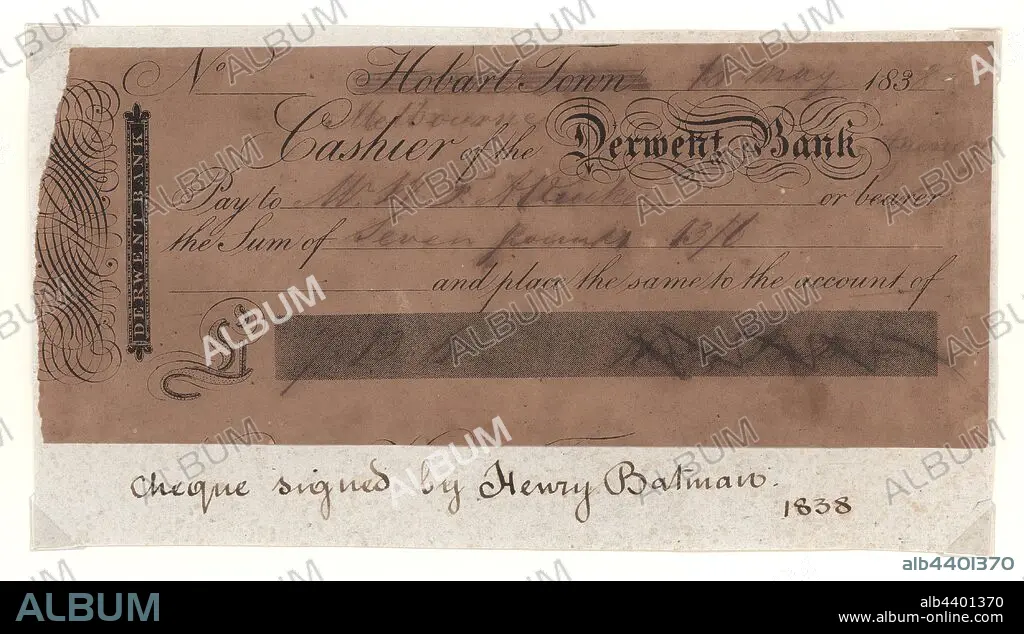 No Hobart Town May 1838
Melbourne
Cashier of the Derwent Bank
Pay to Mr or bearer
the Sum of Seven pounds 13/6
and place the same to the account of
£ 7.13.6
DERWENT BANK
Cheque signed by Henry Batman.
1838
alb4401370
ALBUM
alb4401370
www.album-online.com